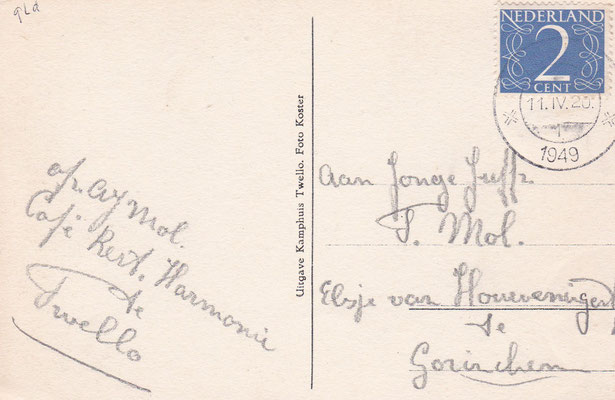 gLd
NEDERLAND
2
CENT
11.IV.20.
1949
Uitgave Kamphuis Twello. Foto Koster
afz. Mol.
Café Rest. Harmonie
te
Twello
Aan Jonge Juffr.
T. Mol.
Elsje van
te
Gorinchem